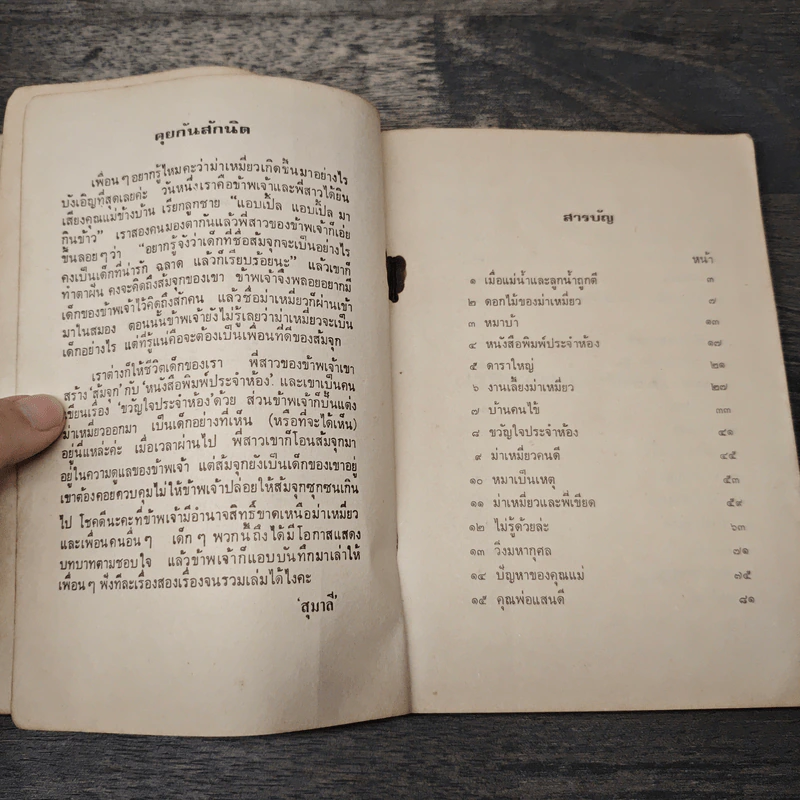 คุยกันสักนิด
เพื่อนๆ อยากรู้ไหมคะว่าม่าเหมี่ยวเกิดขึ้นมาอย่างไร
บังเอิญที่สุดเลยค่ะ วันหนึ่งเราคือข้าพเจ้าและพี่สาวได้ยิน
เสียงคุณแม่ข้างบ้าน เรียกลูกชาย “แอบเปิ้ล แอบเปิ้ล มา
กินข้าว” เราสองคนมองตากันแล้วพี่สาวของข้าพเจ้าก็เอ่ย
ขึ้นลอยๆ ว่า “อยากรู้จังว่าเด็กที่ชื่อส้มจุกจะเป็นอย่างไร
คงเป็นเด็กที่น่ารัก ฉลาด แล้วก็เรียบร้อยนะ” แล้วเขาก็
ทำตาฝัน คงจะคิดถึงส้มจุกของเขา ข้าพเจ้าจึงพลอยอยากมี
เด็กของข้าพเจ้าไว้คิดถึงสักคน แล้วชื่อม่าเหมี่ยวก็ผ่านเข้า
มาในสมอง ตอนนั้นข้าพเจ้ายังไม่รู้เลยว่าม่าเหมี่ยวจะเป็น
เด็กอย่างไร แต่ที่รู้แน่คือจะต้องเป็นเพื่อนที่ดีของส้มจุก
เราต่างก็ให้ชีวิตเด็กของเรา พี่สาวของข้าพเจ้าเขา
สร้าง ‘ส้มจุก’ กับ ‘หนังสือพิมพ์ประจำห้อง’ และเขาเป็นคน
เขียนเรื่อง ‘ขวัญใจประจำห้อง’ ด้วย ส่วนข้าพเจ้าก็ปั้นแต่ง
ม่าเหมี่ยวออกมา เป็นเด็กอย่างที่เห็น (หรือที่จะได้เห็น)
อยู่นี่แหล่ะค่ะ เมื่อเวลาผ่านไป พี่สาวเขาก็โอนส้มจุกมา
อยู่ในความดูแลของข้าพเจ้า แต่ส้มจุกยังเป็นเด็กของเขาอยู่
เขาต้องคอยควบคุมไม่ให้ข้าพเจ้าปล่อยให้ส้มจุกซุกซนเกิน
ไป โชคดีนะคะที่ข้าพเจ้ามีอำนาจสิทธิ์ขาดเหนือม่าเหมี่ยว
และเพื่อนคนอื่นๆ เด็กๆ พวกนี้ถึงได้มีโอกาสแสดง
บทบาทตามชอบใจ แล้วข้าพเจ้าก็แอบบันทึกมาเล่าให้
เพื่อนๆ ฟังทีละเรื่องสองเรื่องจนรวมเล่มได้ไงคะ
‘สุมาลี’
สารบัญ
หน้า
๑ เมื่อแม่น้ำและลูกน้ำถูกตี ๓
๒ ดอกไม้ของม่าเหมี่ยว ๗
๓ หมาบ้า ๑๓
๔ หนังสือพิมพ์ประจำห้อง ๑๗
๕ ดาราใหญ่ ๒๑
๖ งานเลี้ยงม่าเหมี่ยว ๒๗
๗ บ้านคนไข้ ๓๓
๘ ขวัญใจประจำห้อง ๔๑
๙ ม่าเหมี่ยวคนดี ๔๕
๑๐ หมาเป็นเหตุ ๕๓
๑๑ ม่าเหมี่ยวและพี่เขียด ๕๙
๑๒ ไม่รู้ด้วยล่ะ ๖๓
๑๓ วิ่งมหากุศล ๗๑
๑๔ ปัญหาของคุณแม่ ๗๕
๑๕ คุณพ่อแสนดี ๘๑